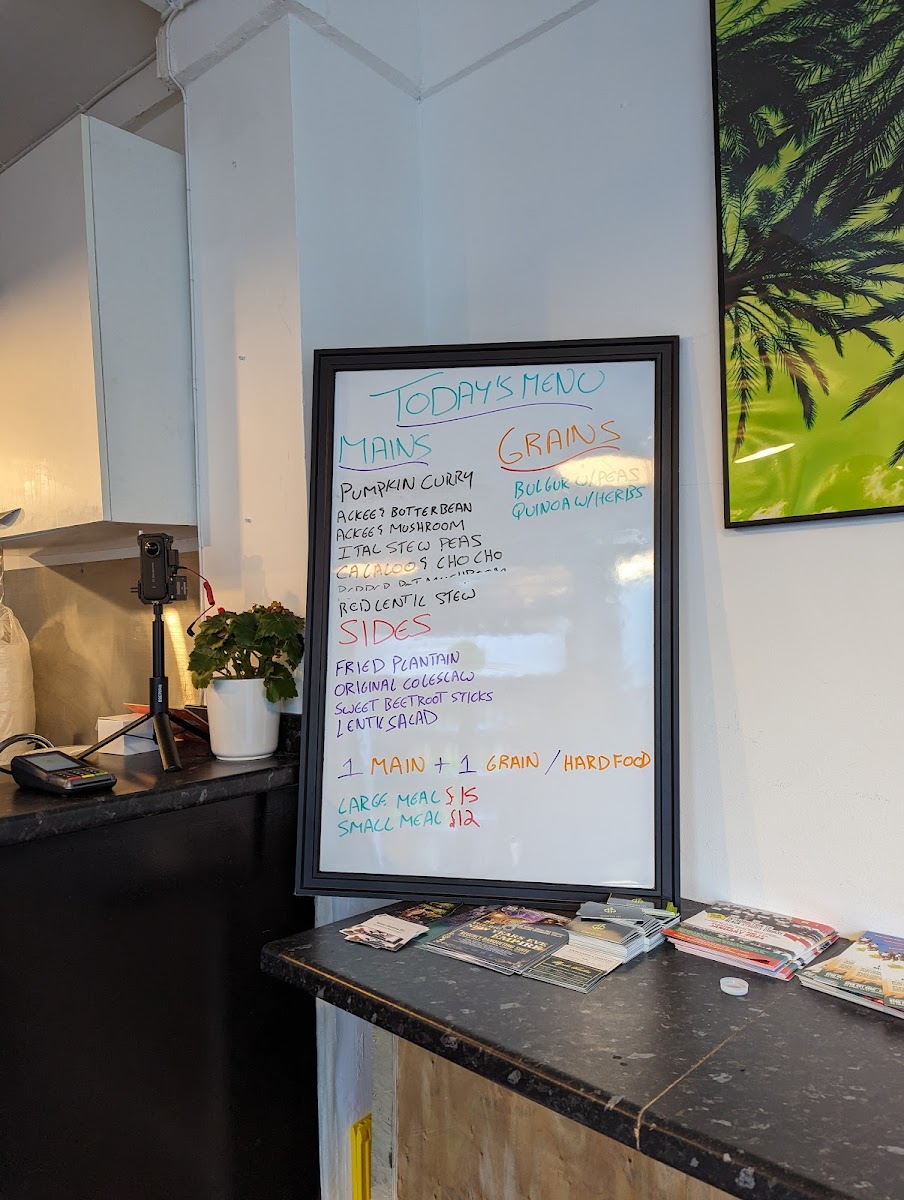 TODAY'S MENU
MAINS
PUMPKIN CURRY
ACKEE & BOTTERBEAN
ACKEE & MUSHROOM
ITAL STEW PEAS
CALALOO & CHO CHO
RED LENTIL STEW
SIDES
FRIED PLANTAIN
ORIGINAL COLESLAW
SWEET BEETROOT STICKS
LENTIL SALAD
GRAINS
BULGUR W/PEAS
QUINOA W/HERBS
1 MAIN + 1 GRAIN / HARDFOOD
LARGE MEAL £15
SMALL MEAL £12